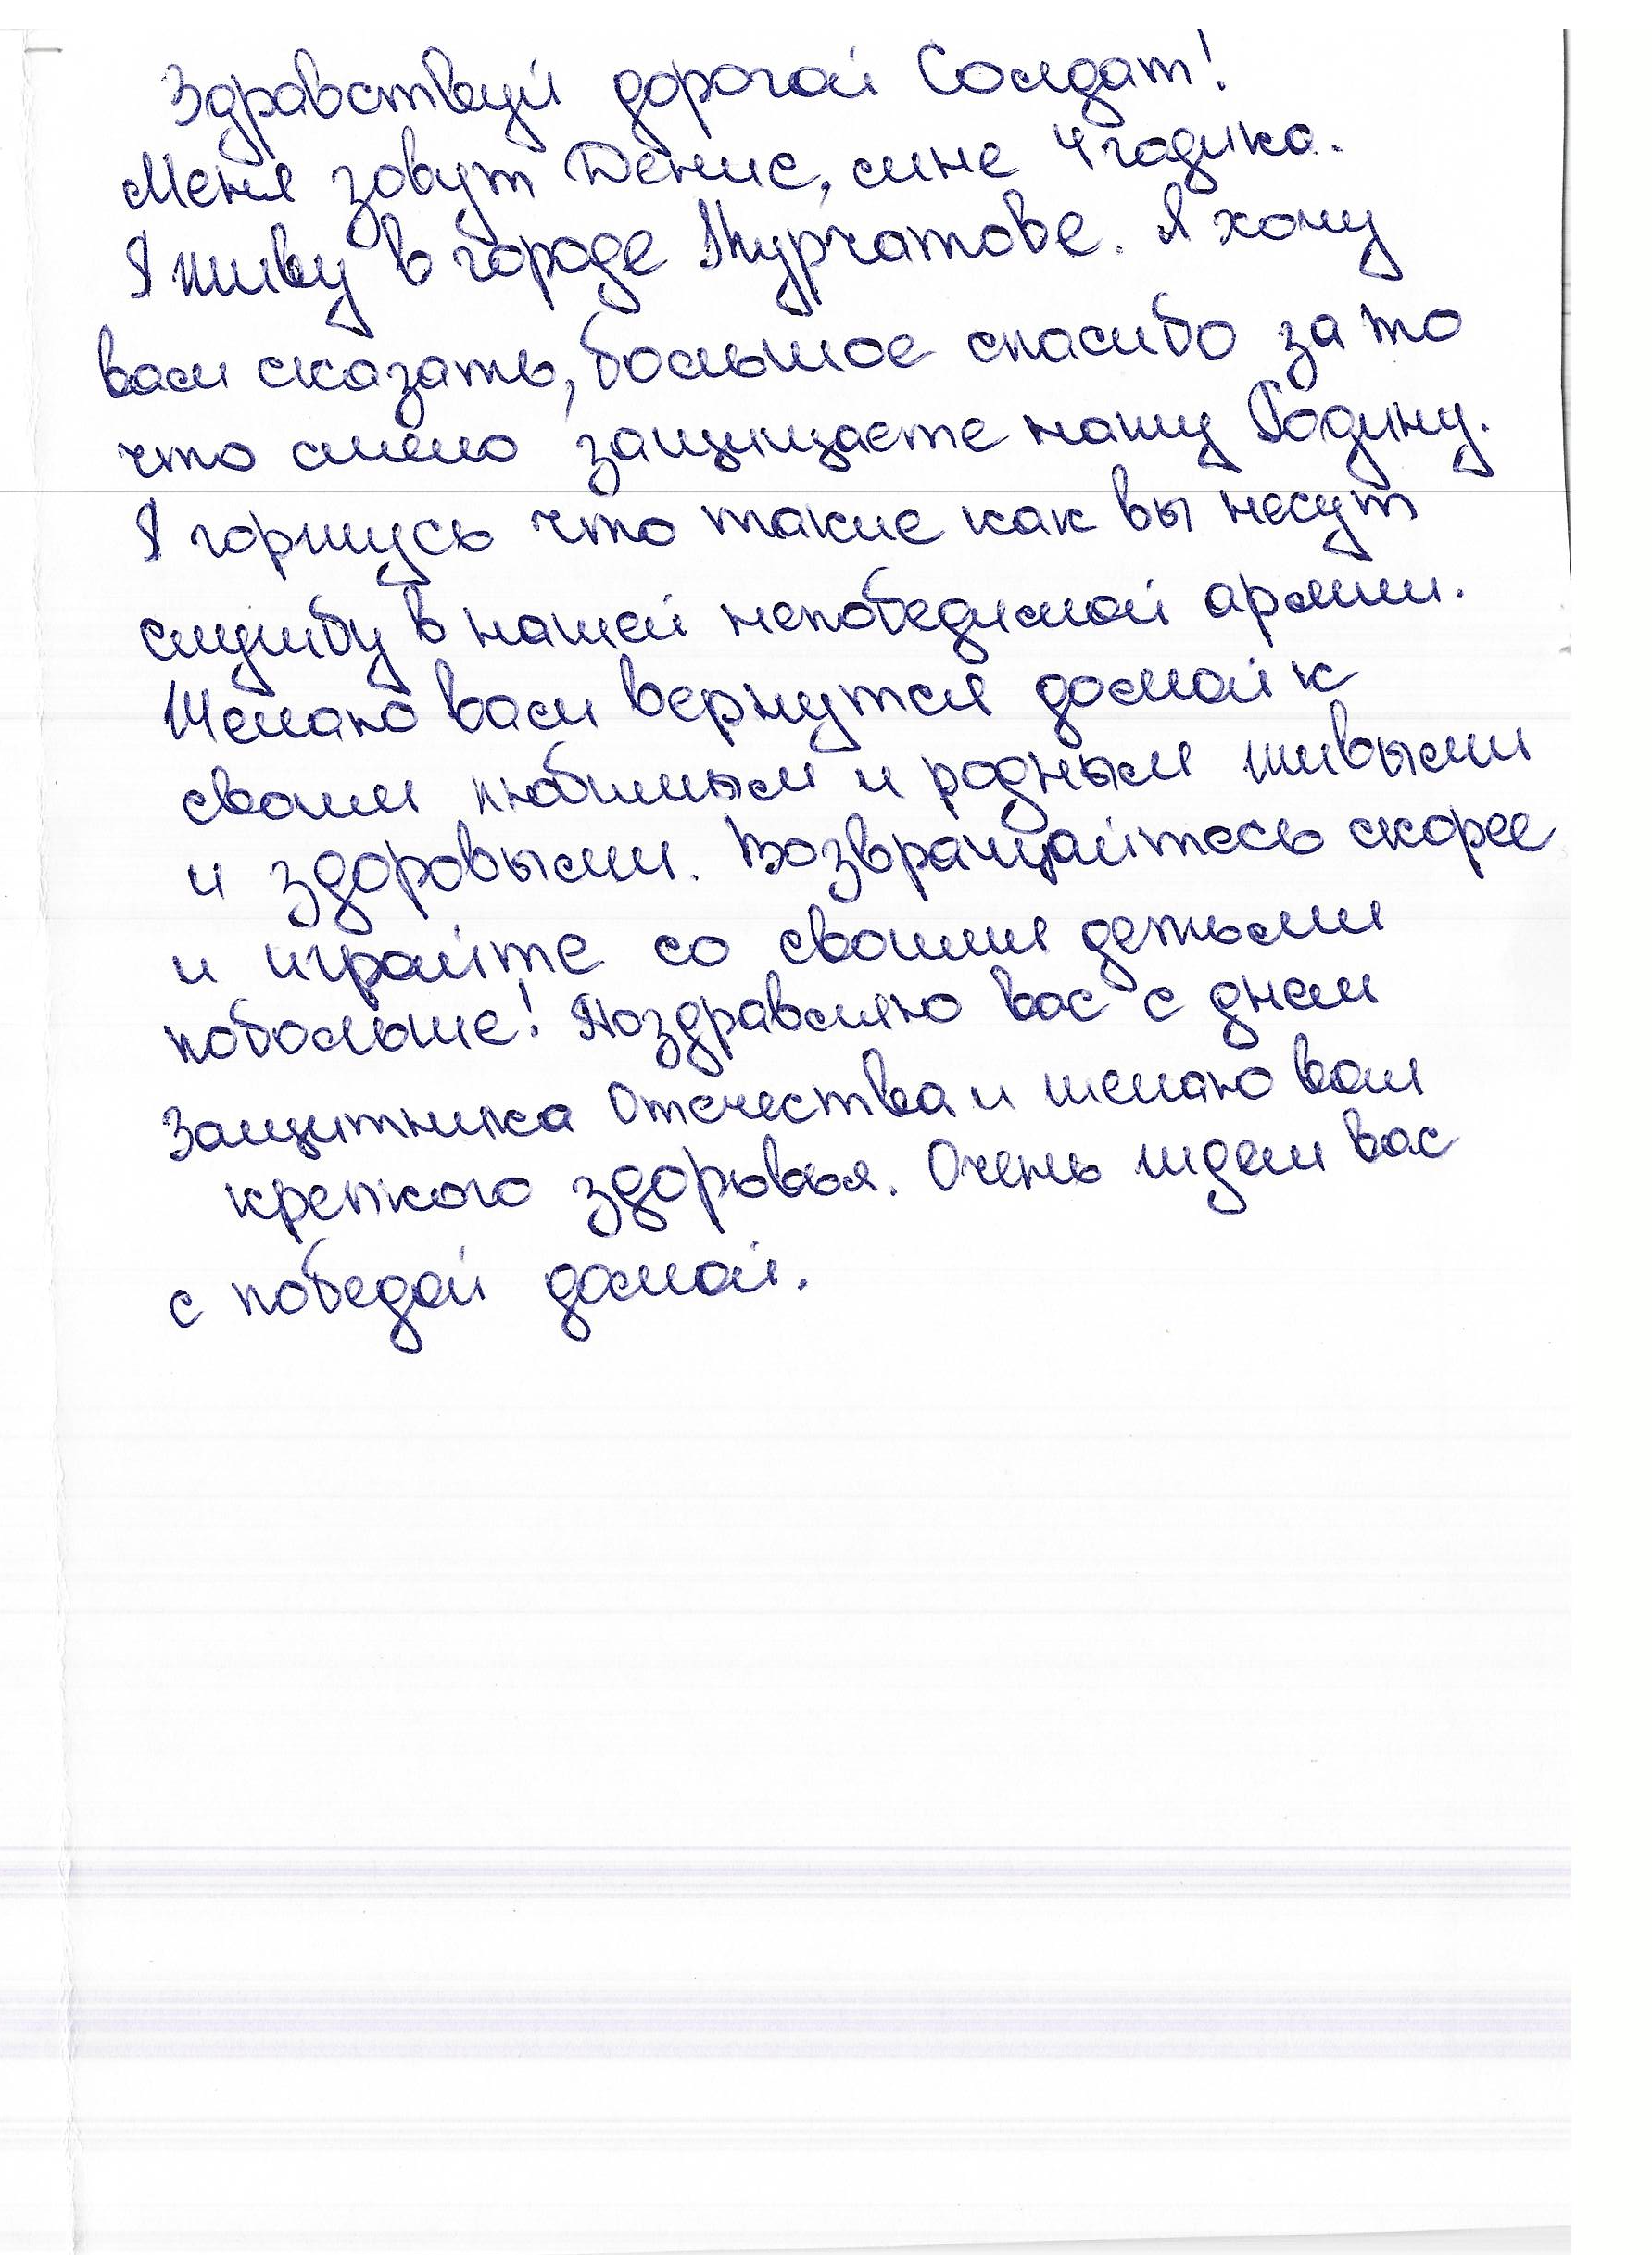 Здравствуй дорогой Солдат!
Меня зовут Денис, мне 4 годика.
Я живу в городе Курчатове. Я хочу
вам сказать, большое спасибо за то
что смело защищаете нашу Родину.
Я горжусь что такие как вы несут
службу в нашей непобедимой армии.
Желаю вам вернутся домой к
своим любимым и родным живыми
и здоровыми. Возвращайтесь скорее
и играйте со своими детьми
побольше! Поздравляю вас с днем
Защитника Отечества и желаю вам
крепкого здоровья. Очень ждем вас
с победой домой.